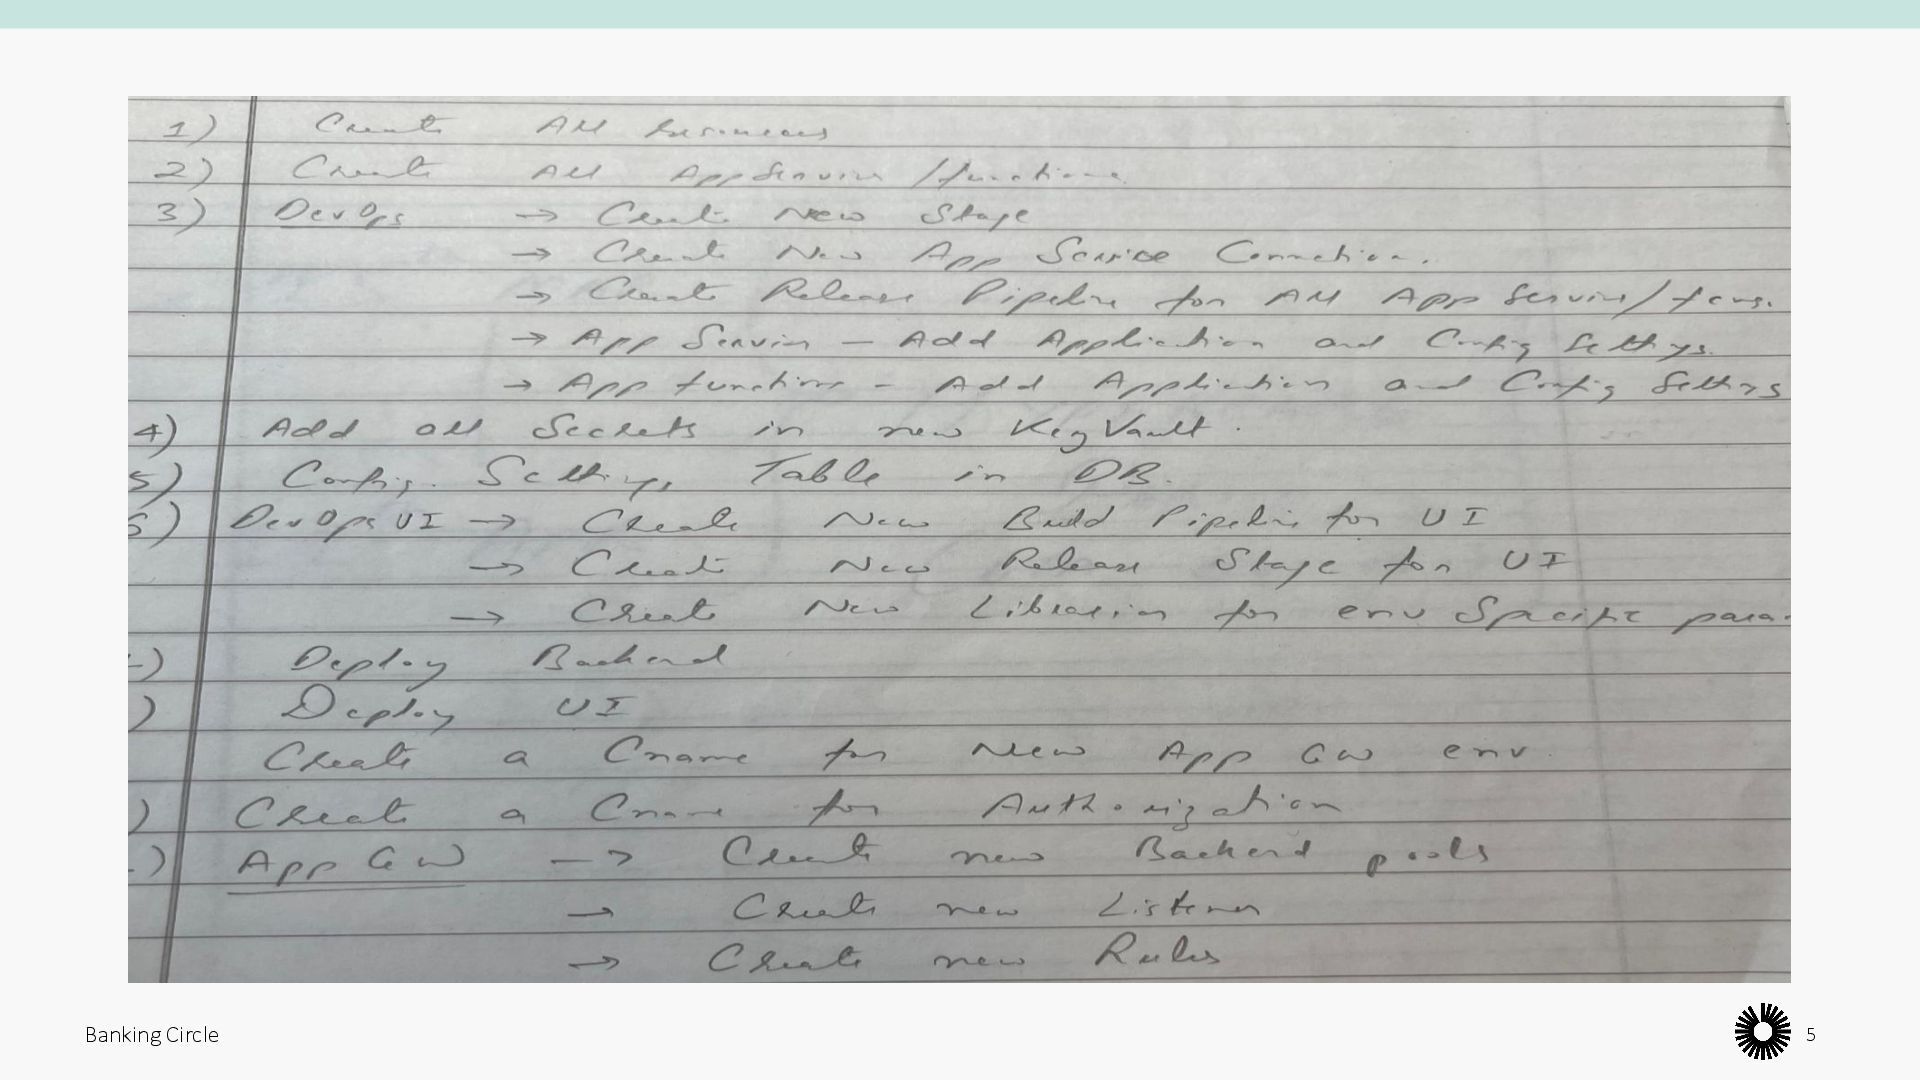 1) Create All
2) Create All App Services / functions
3) DevOps → Create New Stage
→ Create New App Service Connection.
→ Create Release Pipeline for All App Services/funs.
→ App Service – Add Application and Config Settings.
→ App functions – Add Application and Config Settings
4) Add all Secrets in new KeyVault.
5) Config. Settings Table in DB.
6) DevOps UI → Create New Build Pipeline for UI
→ Create New Release Stage for UI
→ Create New Libraries for env Specific para
) Deploy Backend
) Deploy UI
Create a Cname for New App GW env.
) Create a Cname for Authorization
) App GW --> Create new Backend pools
→ Create new Listener
→ Create new Rules
Banking Circle
5